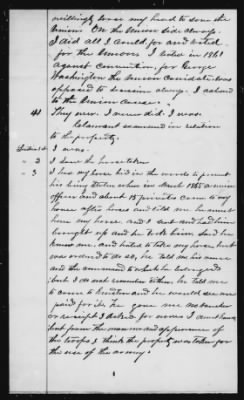 willingly lose my head to save the
Union. On the Union side always.
I did all I could for and voted
for the Union. I voted in 1861
against Convention, for George
Washington the Union Candidate. was
opposed to secession always. I adhered
to the Union Cause.
41 They were. I never did. I was.
Claimant examined in relation
to the property.
I was.
2 I saw the horse taken
3 I had my horse hid in the woods to prevent
his being stolen when in March 1865 a union
officer and about 15 privates came to my
house after horses and told me he must
have my horse, and I sent and had him
brought up and he took him. Said he
knew me, and hated to take my horse but
was ordered to do so, he told me his name
and the command to which he belonged
but I do not remember either. he told me
to come to Kinston and he would see me
paid for it. He gave me no voucher
or receipt I asked for none. I don't know
but from the manner and appearance of
the troops I think the property was taken for
the use of the army.